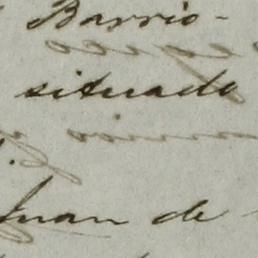 Barrio-
situado
Juan de